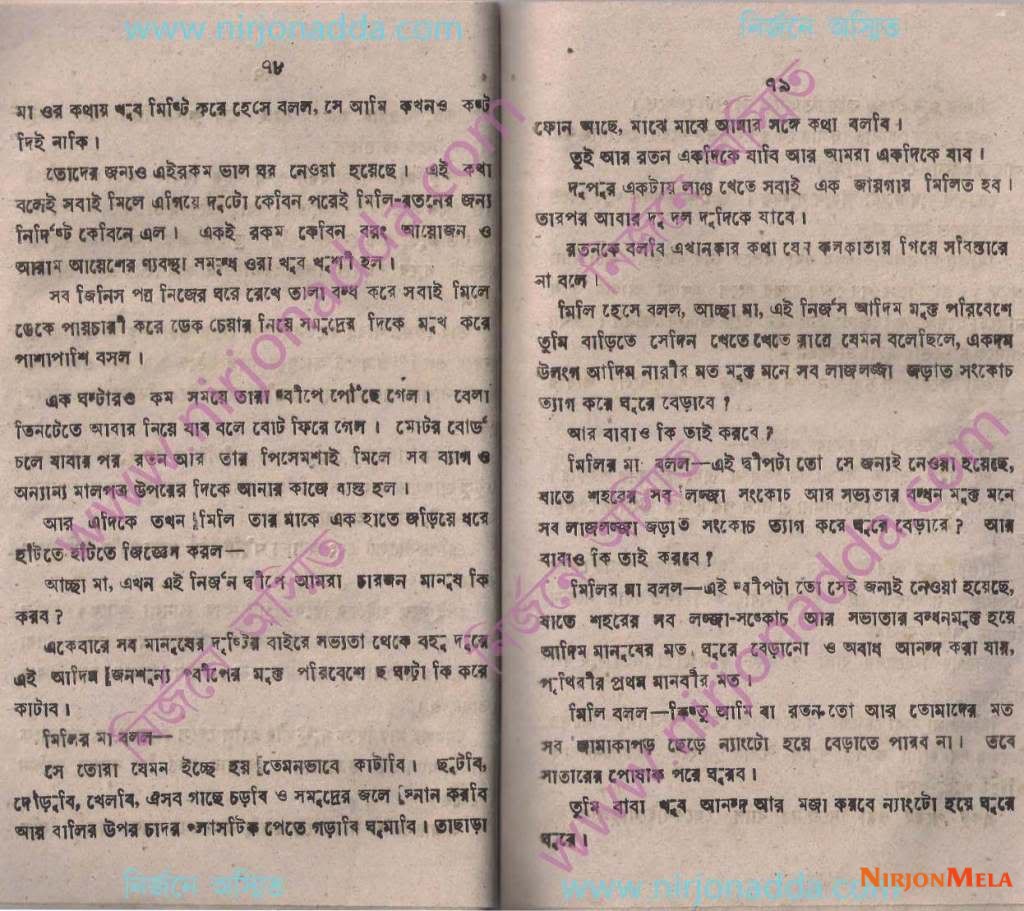 www.nirjonadda.com
নির্জনে অস্মিত
৭৮
মা ওর কথায় খুব মিষ্টি করে হেসে বলল, সে আমি কখনও কষ্ট
দিই নাকি।
তোদের জন্যও এইরকম ভাল ঘর নেওয়া হয়েছে। এই কথা
বলেই সবাই মিলে এগিয়ে দুটো কেবিন পরেই মিলি-রতনের জন্য
নির্দিষ্ট কেবিনে এল। একই রকম কেবিন বরং আয়োজন ও
আরাম আয়েশের ব্যবস্থা সমৃদ্ধ ওরা খুব খুশী হল।
সব জিনিস পত্র নিজের ঘরে রেখে তালা বন্ধ করে সবাই মিলে
ডেকে পায়চারী করে ডেক চেয়ার নিয়ে সমুদ্রের দিকে মুখ করে
পাশাপাশি বসল।
এক ঘণ্টারও কম সময়ে তারা দ্বীপে পৌঁছে গেল। বেলা
তিনটেতে আবার নিয়ে যাব বলে বোট ফিরে গেল। মোটর বোর্ড
চলে যাবার পর রতন আর তার পিসেমশাই মিলে সব ব্যাগ ও
অন্যান্য মালপত্র উপরের দিকে আনার কাজে ব্যস্ত হল।
আর এদিকে তখন মিলি তার মাকে এক হাতে জড়িয়ে ধরে
হাঁটতে হাঁটতে জিজ্ঞেস করল—
আচ্ছা মা, এখন এই নির্জন দ্বীপে আমরা চারজন মানুষ কি
করব?
একেবারে সব মানুষের দৃষ্টির বাইরে সভ্যতা থেকে বহু দূরে
এই আদিম [জনশূন্য দ্বীপের মুক্ত পরিবেশে ছ ঘণ্টা কি করে
কাটাব।
মিলির মা বলল—
সে তোরা যেমন ইচ্ছে হয় [তেমনভাবে কাটাবি। ছুটবি,
দৌড়ুবি, খেলবি, এসব গাছে চড়বি ও সমুদ্রের জলে স্নান করবি
আর বালির উপর চাদর প্লাসটিক পেতে গড়াবি ঘুমাবি। তাছাড়া
৭৯
ফোন আছে, মাঝে মাঝে আমার সঙ্গে কথা বলবি।
তুই আর রতন একদিকে যাবি আর আমরা একদিকে যাব।
দুপুর একটায় লাঞ্চ খেতে সবাই এক জায়গায় মিলিত হব।
তারপর আবার দু দল দুদিকে যাবে।
রতনকে বলবি এখানকার কথা যেন কলকাতায় গিয়ে সবিস্তারে
না বলে।
মিলি হেসে বলল, আচ্ছা মা, এই নির্জন আদিম মুক্ত পরিবেশে
তুমি বাড়িতে সেদিন খেতে খেতে রাত্রে যেমন বলেছিলে, একদম
উলংগ আদিম নারীর মত মুক্ত মনে সব লাজলজ্জা জড়াত সংকোচ
ত্যাগ করে ঘুরে বেড়াবে?
আর বাবাও কি তাই করবে?
মিলির মা বলল—এই দ্বীপটা তো সে জন্যই নেওয়া হয়েছে,
যাতে শহরের সব লজ্জা সংকোচ আর সভ্যতার বন্ধন মুক্ত মনে
সব লাজলজ্জা জড়াত সংকোচ ত্যাগ করে ঘুরে বেড়ারে? আর
বাবাও কি তাই করবে?
মিলির মা বলল—এই দ্বীপটা তো সেই জন্যই নেওয়া হয়েছে,
যাতে শহরের সব লজ্জা-সঙ্কোচ আর সভ্যতার বন্ধনমুক্ত হয়ে
আদিম মানুষের মত ঘুরে বেড়ানো ও অবাধ আনন্দ করা যায়,
পৃথিবীর প্রথম মানবীর মত।
মিলি বলল—কিন্তু আমি বা রতন তো আর তোমাদের মত
সব জামাকাপড় ছেড়ে ন্যাংটো হয়ে বেড়াতে পারব না। তবে
সাতারের পোষাক পরে ঘুরব।
তুমি বাবা খুব আনন্দ আর মজা করবে ন্যাংটো হয়ে ঘুরে
ঘুরে।
www.nirjonadda.com
নির্জনে অস্মিত
www.nirjonadda.com
নির্জনে অস্মিত
নির্জনে অস্মিত
www.nirjonadda.com
নির্জনে অস্মিত
www.nirjonadda.com
NIRJONMELA